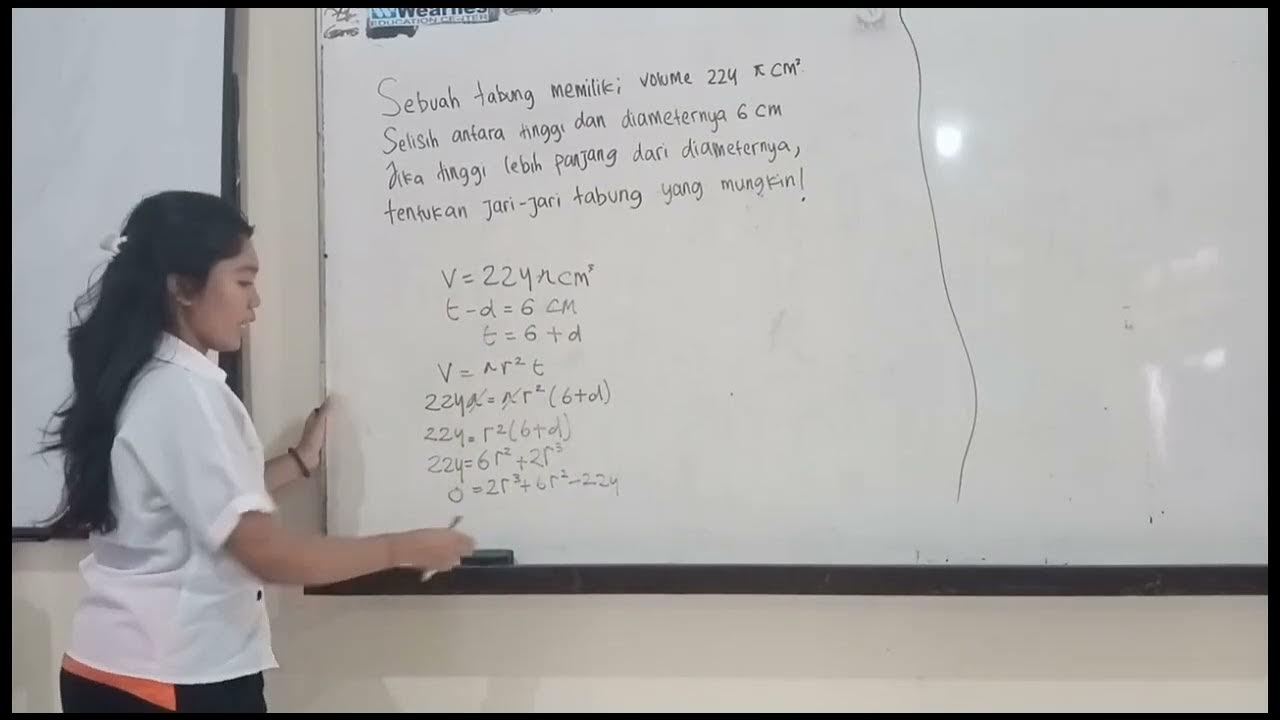 Wearnes
EDUCATION CENTER
Sebuah tabung memiliki volume 224 π cm³.
Selisih antara tinggi dan diameternya 6 cm
Jika tinggi lebih panjang dari diameternya,
tentukan jari-jari tabung yang mungkin!
V = 224 π cm³
t - d = 6 cm
t = 6 + d
V = π r² t
224π = π r² (6+d)
224 = r² (6+d)
224 = 6r² + 2r³
0 = 2r³ + 6r² - 224